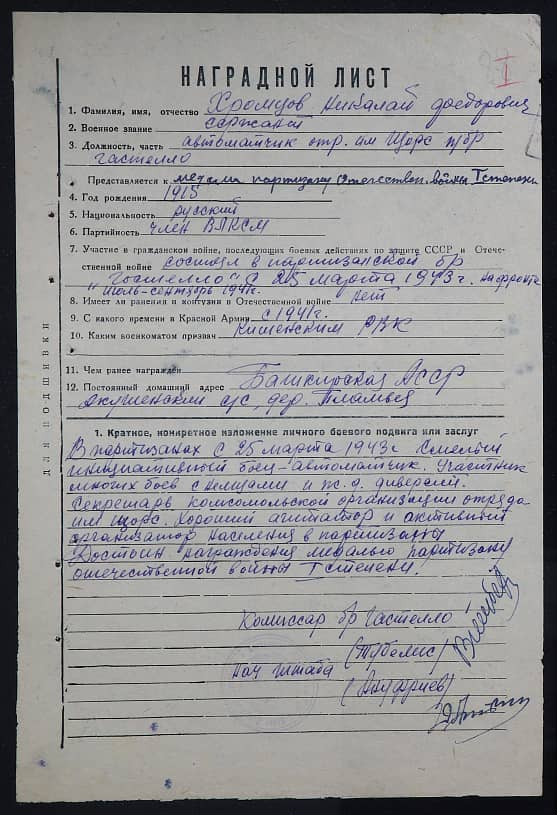 I
НАГРАДНОЙ ЛИСТ
1. Фамилия, имя, отчество Хромцов Николай Федорович
2. Военное звание сержант
3. Должность, часть автоматчик отр. им Щорс п/бр
гастелло
Представляется к медали партизану Отечествен. войны I степени
4. Год рождения 1915
5. Национальность русский
6. Партийность член ВЛКСМ
7. Участие в гражданской войне, последующих боевых действиях по защите СССР и Отече-
ственной войне состоял в партизанской бр
"Гастелло" с 25 марта 1943г. на фронте
июль-сентябрь 1941г.
8. Имеет ли ранения и контузии в Отечественной войне нет
9. С какого времени в Красной Армии с 1941г.
10. Каким военкоматом призван РВК
11. Чем ранее награжден
12. Постоянный домашний адрес Башкирская АССР
с/с, дер.
ДЛЯ ПОДШИВКИ
1. Краткое, конкретное изложение личного боевого подвига или заслуг
В партизанах с 25 марта 1943г Смелый
инициативный боец-автоматчик. Участник
многих боев с немцами и ж.д. диверсий.
Секретарь комсомольской организации отряда
им Щорс. Хороший агитатор и активный
организатор населения в партизаны
Достоин награждения медалью партизану
отечественной войны I степени.
Комиссар бр Гастелло
(Тубелис)
Нач штаба
(Ануфриев)